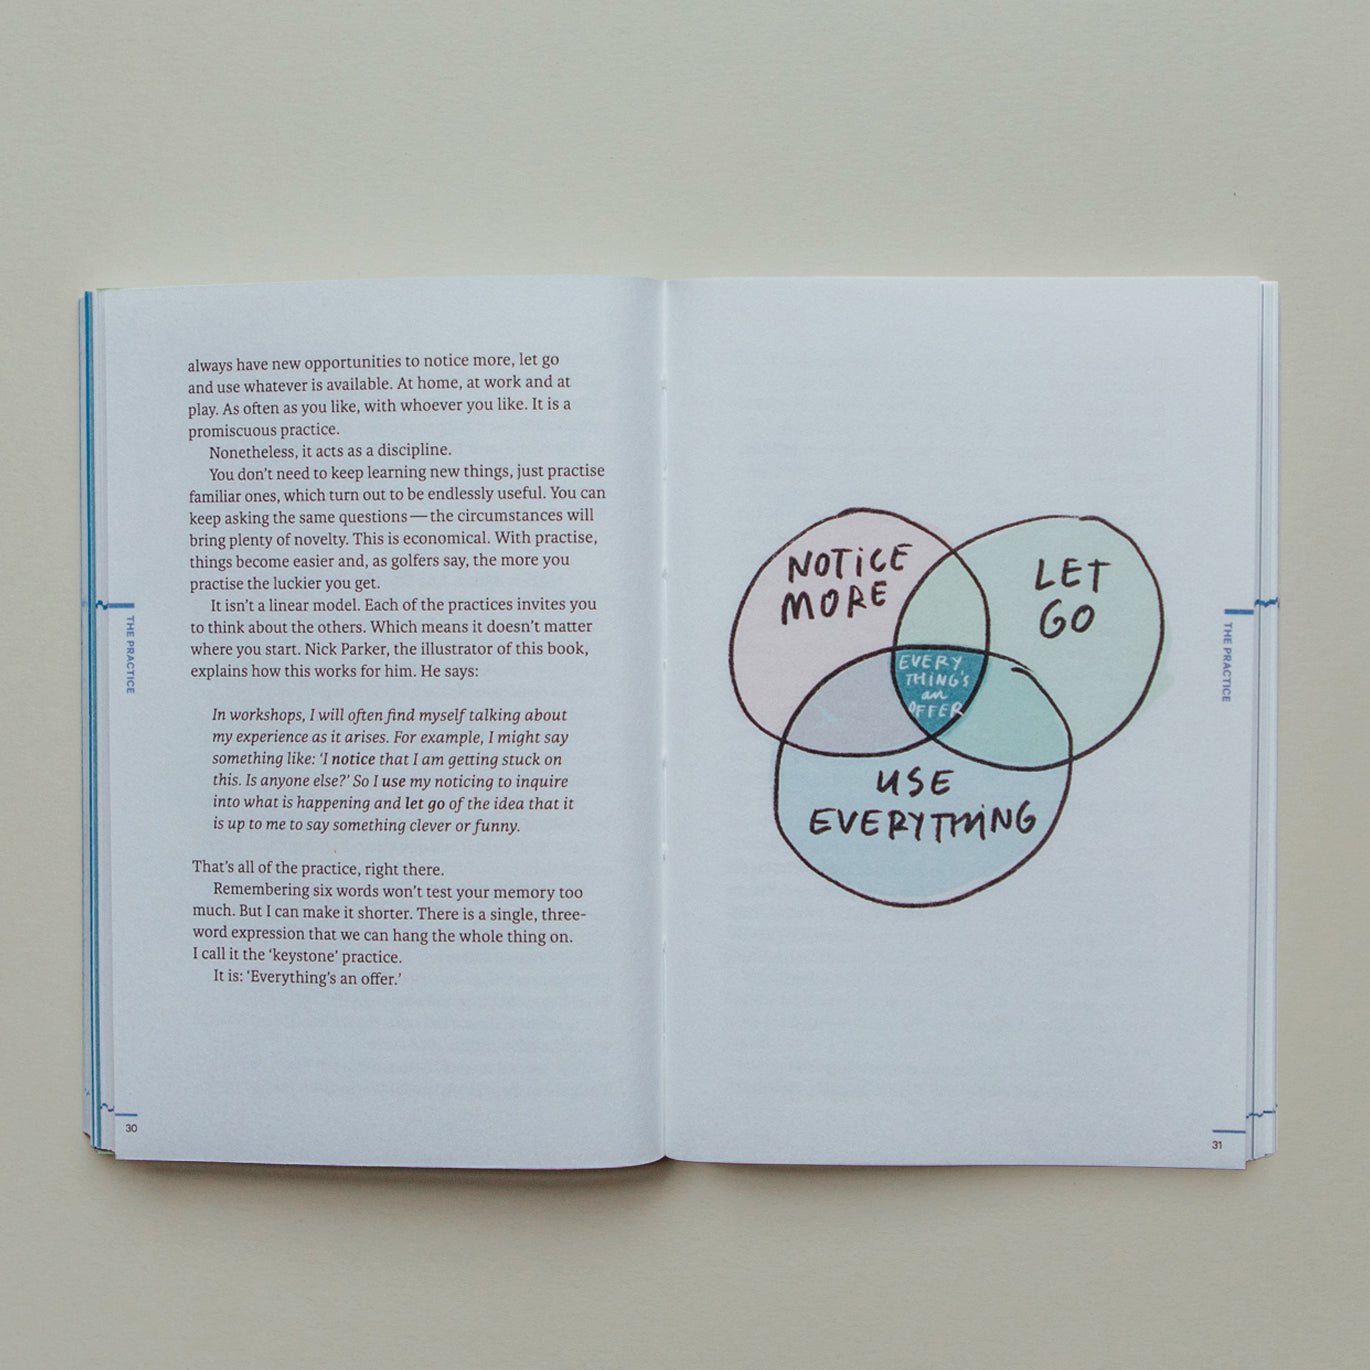 always have new opportunities to notice more, let go
and use whatever is available. At home, at work and at
play. As often as you like, with whoever you like. It is a
promiscuous practice.
Nonetheless, it acts as a discipline.
You don’t need to keep learning new things, just practise
familiar ones, which turn out to be endlessly useful. You can
keep asking the same questions — the circumstances will
bring plenty of novelty. This is economical. With practise,
things become easier and, as golfers say, the more you
practise the luckier you get.
It isn’t a linear model. Each of the practices invites you
to think about the others. Which means it doesn’t matter
where you start. Nick Parker, the illustrator of this book,
explains how this works for him. He says:
In workshops, I will often find myself talking about
my experience as it arises. For example, I might say
something like: ‘I notice that I am getting stuck on
this. Is anyone else?’ So I use my noticing to inquire
into what is happening and let go of the idea that it
is up to me to say something clever or funny.
That’s all of the practice, right there.
Remembering six words won’t test your memory too
much. But I can make it shorter. There is a single, three-
word expression that we can hang the whole thing on.
I call it the ‘keystone’ practice.
It is: ‘Everything’s an offer.’
THE PRACTICE
30
NOTiCE
MORE
LET
GO
EVERY
THING'S
an
OFFER
USE
EVERYTHiNG
THE PRACTICE
31